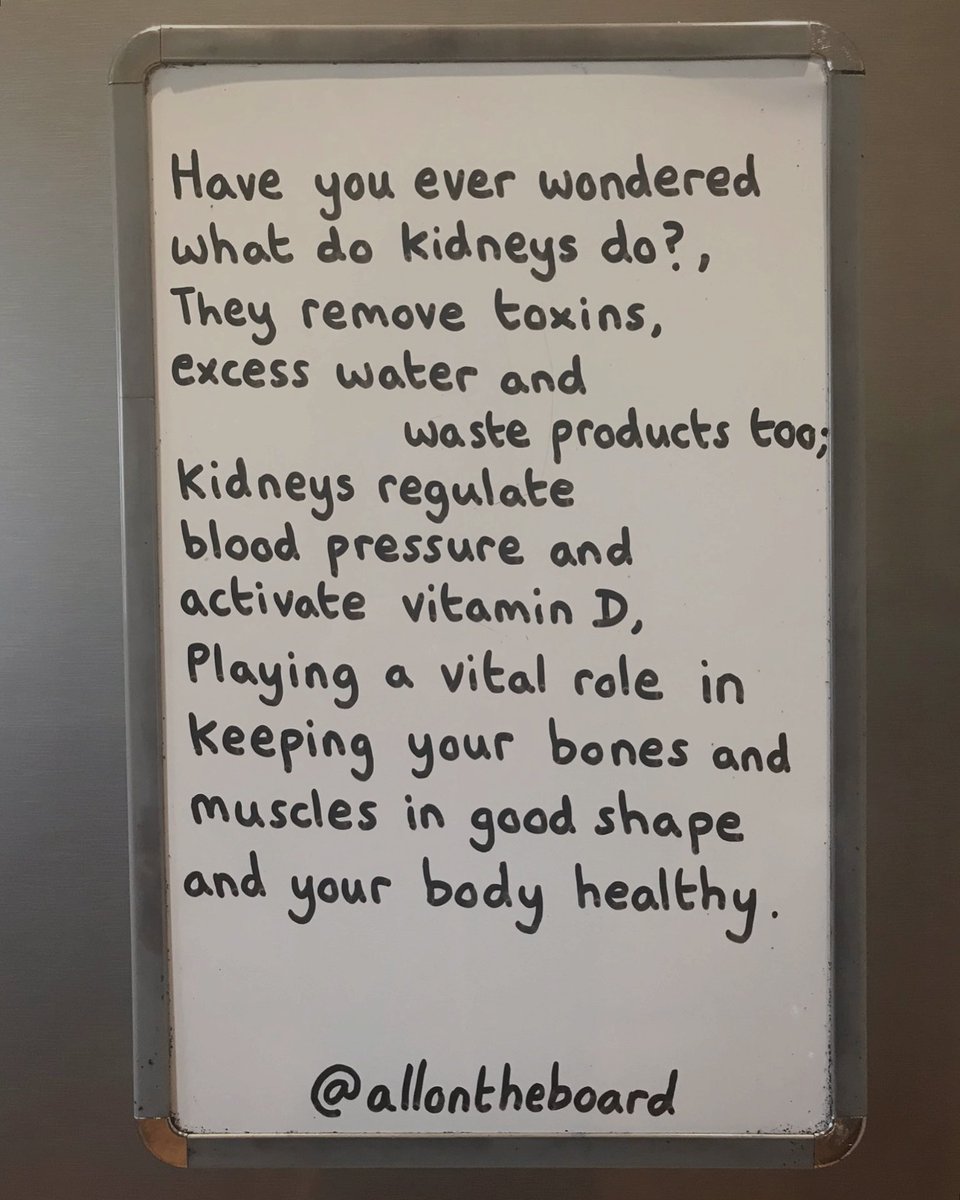 Have you ever wondered
what do kidneys do?,
They remove toxins,
excess water and
waste products too;
Kidneys regulate
blood pressure and
activate vitamin D,
Playing a vital role in
keeping your bones and
muscles in good shape
and your body healthy.
@allontheboard